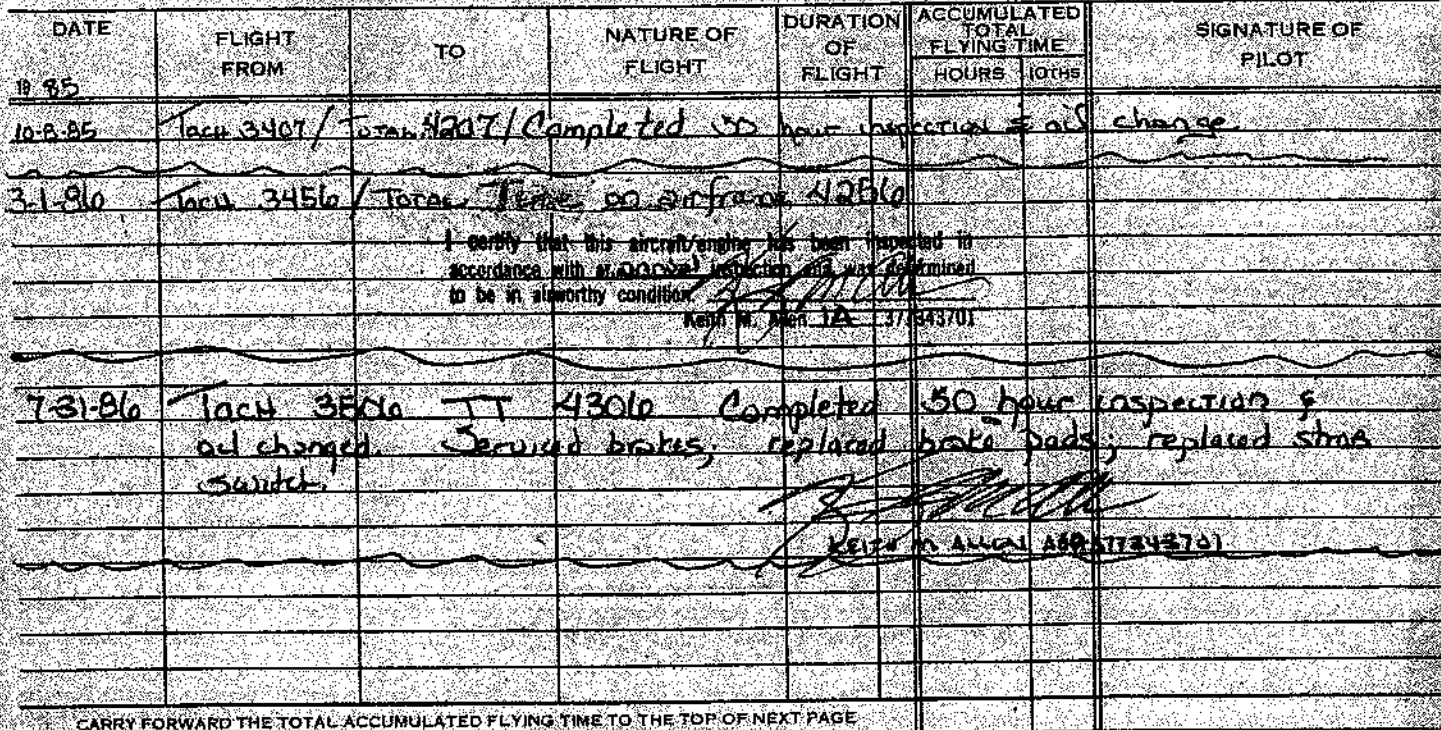 DATE FLIGHT FROM TO NATURE OF FLIGHT DURATION OF FLIGHT ACCUMULATED TOTAL FLYING TIME HOURS 10THS SIGNATURE OF PILOT
19 85
10-8-85 Tach 3407 / Total 4207 / Completed 50 hour inspection & oil change
3-1-86 Tach 3456 / Total Time on airframe 4256
I certify that this aircraft/engine has been inspected in
accordance with an annual inspection and was determined
to be in airworthy condition.
Keith M. Allen IA 377343701
7-31-86 Tach 3506 TT 4306 Completed 50 hour inspection &
oil changed. Serviced brakes; replaced brake pads; replaced
switch.
KEITH M ALLEN 377343701
CARRY FORWARD THE TOTAL ACCUMULATED FLYING TIME TO THE TOP OF NEXT PAGE